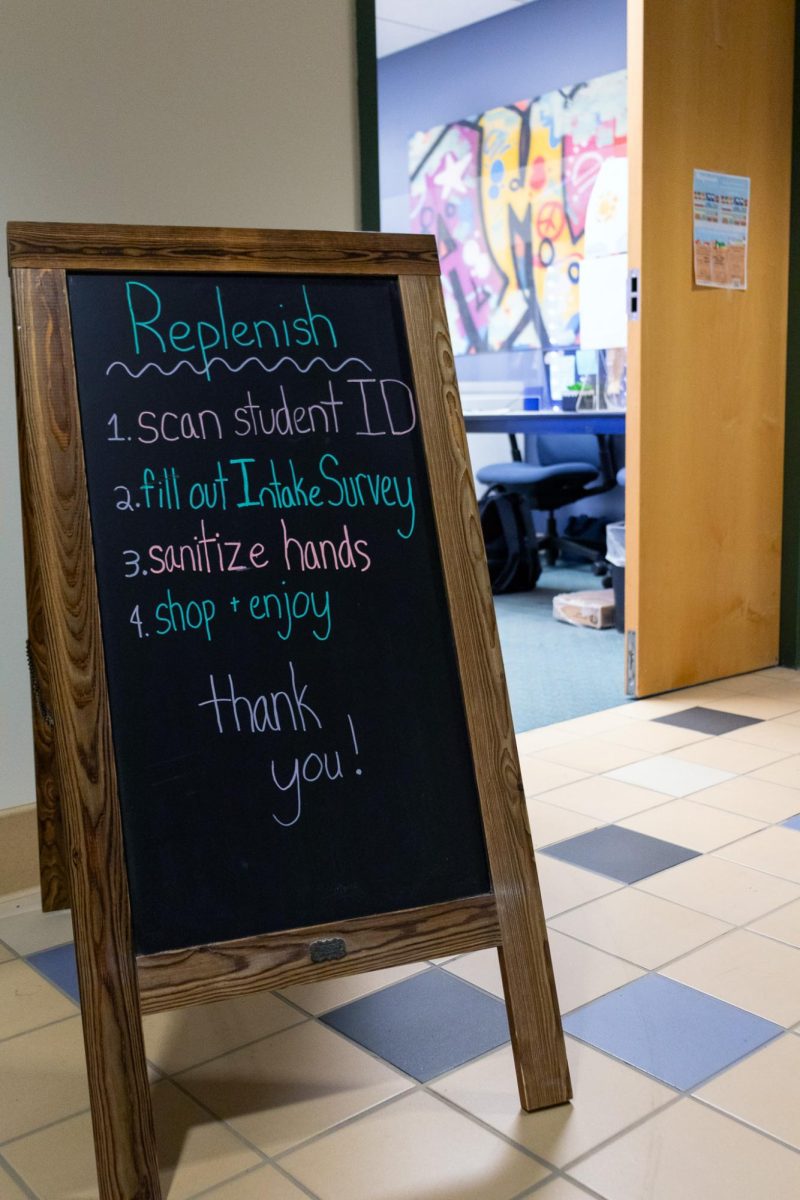 Replenish
1. scan student ID
2. fill out Intake Survey
3. sanitize hands
4. shop + enjoy
thank
you!